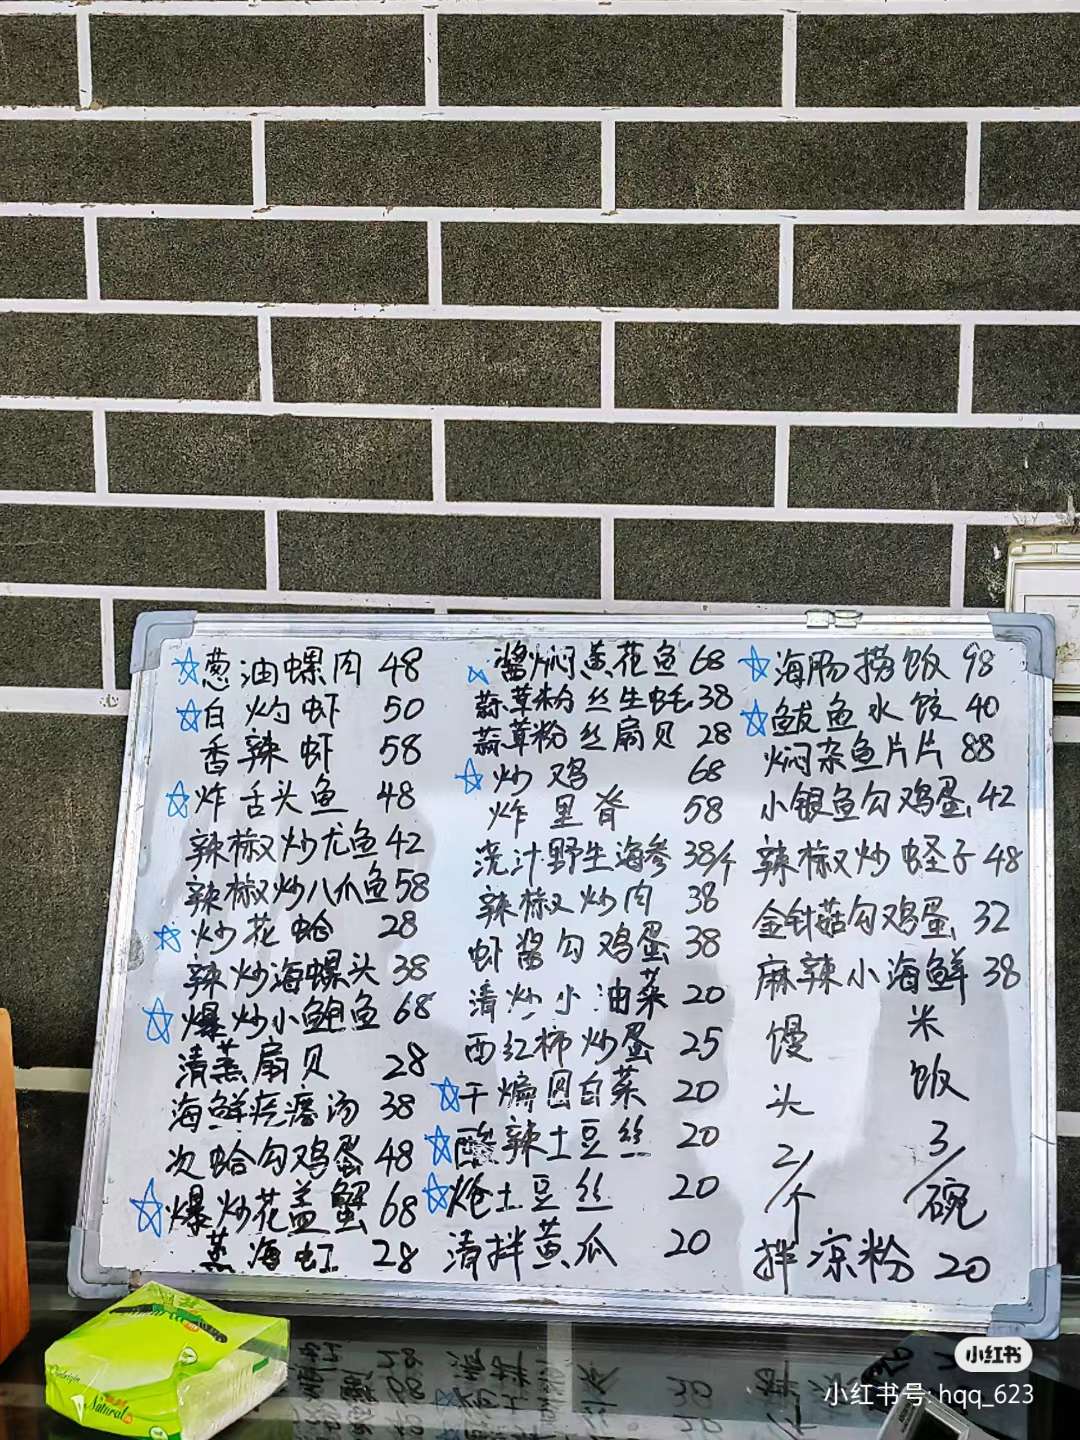 ☆葱油螺肉 48
☆白灼虾 50
香辣虾 58
☆炸舌头鱼 48
辣椒炒尤鱼 42
辣椒炒八爪鱼 58
☆炒花蛤 28
辣炒海螺头 38
☆爆炒小鲍鱼 68
清蒸扇贝 28
海鲜疙瘩汤 38
次蛤勾鸡蛋 48
☆爆炒花盖蟹 68
蒸海虹 28
☆酱焖黄花鱼 68
蒜草粉丝生蚝 38
蒜草粉丝扇贝 28
☆炒鸡 68
炸里脊 58
浇汁野生海参 38/个
辣椒炒肉 38
虾酱勾鸡蛋 38
清炒小油菜 20
西红柿炒蛋 25
☆干煸圆白菜 20
☆酸辣土豆丝 20
☆炝土豆丝 20
清拌黄瓜 20
☆海肠捞饭 98
☆鲅鱼水饺 40
焖杂鱼片片 88
小银鱼勾鸡蛋 42
辣椒炒蛏子 48
金针菇勾鸡蛋 32
麻辣小海鲜 38
馒头 2/个
米饭 3/碗
拌凉粉 20
Natural
小红书
小红书号: hqq_623